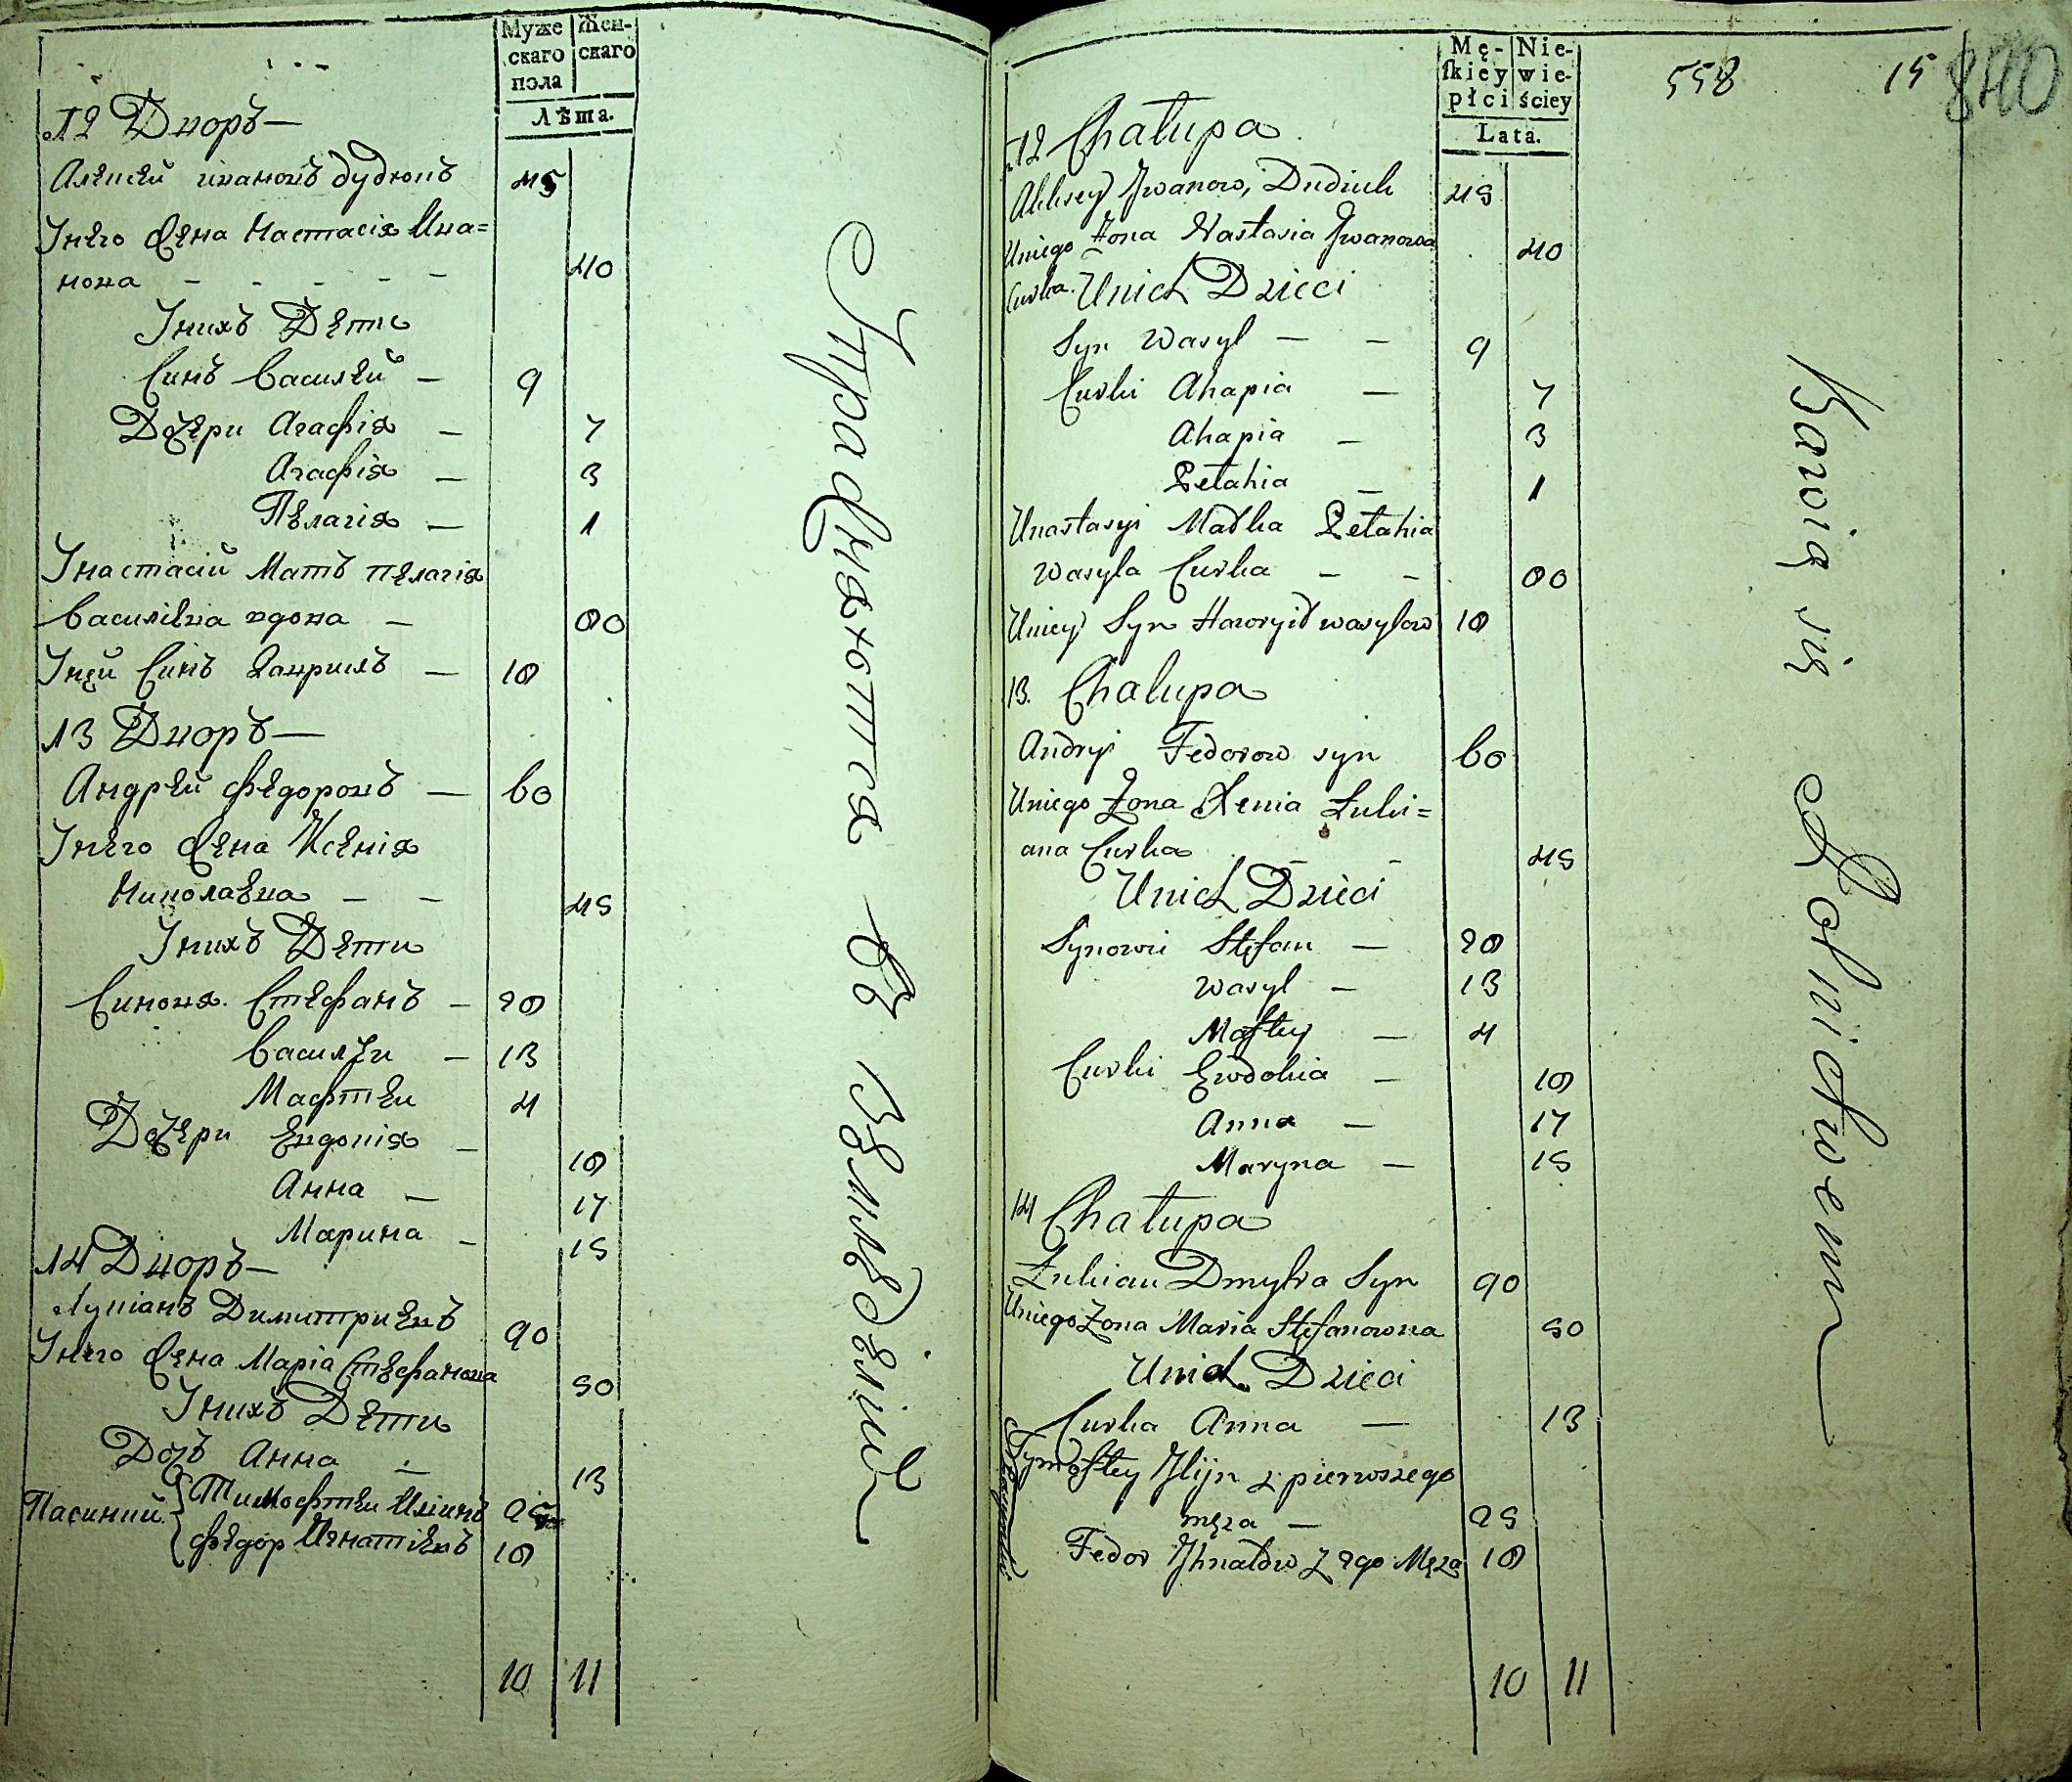 Муже
скаго
пола
Жен-
скаго
Лѣта.
12 Дворъ —
Алексѣй ивановъ дудюкъ 45
Унего жена Настасія Ива=
нова - - - - - 40
Унихъ Дети
Синъ Василѣй — 9
Дочери Агафія — 7
Агафія — 3
Пелагія — 1
Унастасіи Мать пелагія
Василіева вдова — 80
Уней Синъ Гавриилъ — 18
13 Дворъ —
Андрѣй Федоровъ — 60
Унего жена Ксенія
Николаевна — - 45
Унихъ Дети
Синовя. Стефанъ — 20
Василѣи — 13
Мафтѣи 4
Дочери Евдокія — 18
Анна — 17
Марина — 15
14 Дворъ —
Лукіанъ Димитриевъ 90
Унего жена Маріа Стефанова 50
Унихъ Дети
Дочъ Анна — 13
Пасинки { Тимофтеи Илиинъ 25
Федор Игнатіевъ 18
10 11
Упражняются въ Земледѣліи
Mę-
skiey
płci
Nie-
wie-
ściey
Lata.
558 15 840
12 Chałupa
Alexey Jwanow, Dudiuk 45
Uniego Żona Nastasia Jwanowa 40
Curka. Unich Dzieci
Syn Wasyl — - 9
Curki Ahapia — 7
Ahapia — 3
Pełahia — 1
Unastasyi Matka Pełahia
Wasyla Curka — - 80
Unieyi Syn Hawrył wasylow 18
13. Chałupa
Andryi Fedorow syn 60
Uniego Żona Xenia Łuki=
ana Curka - - 45
Unich Dzieci
Synowie Stefan — 20
Wasyl — 13
Maftey — 4
Curki Ewdokia — 18
Anna — 17
Maryna — 15
14 Chałupa
Łukian Dmytra Syn 90
Uniego Żona Maria Stefanowna 50
Unich Dzieci
Curka Anna — 13
Tymoftey Jlijn z pierwszego
męża — 25
Fedor Jhnatow z 2go Męża 18
10 11
Bawią się Rolnictwem